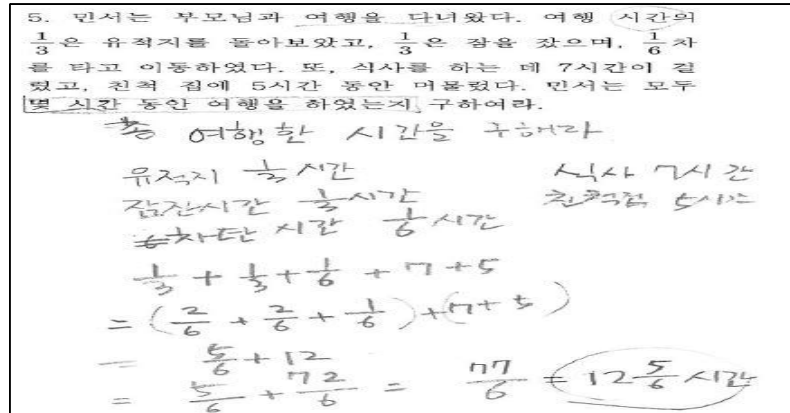 5. 민서는 부모님과 여행을 다녀왔다. 여행 시간의
1/3은 유적지를 돌아보았고, 1/3은 잠을 잤으며, 1/6 차
를 타고 이동하였다. 또, 식사를 하는 데 7시간이 걸
렸고, 친척 집에 5시간 동안 머물렀다. 민서는 모두
몇 시간 동안 여행을 하였는지 구하여라.
여행한 시간을 구해라
유적지 1/3 시간 식사 7시간
잠잔시간 1/3 시간 친척집 5시간
차탄 시간 1/6 시간
1/3 + 1/3 + 1/6 + 7 + 5
= (2/6 + 2/6 + 1/6) + (7 + 5)
= 5/6 + 12
= 5/6 + 72/6 = 77/6 = 12 5/6 시간